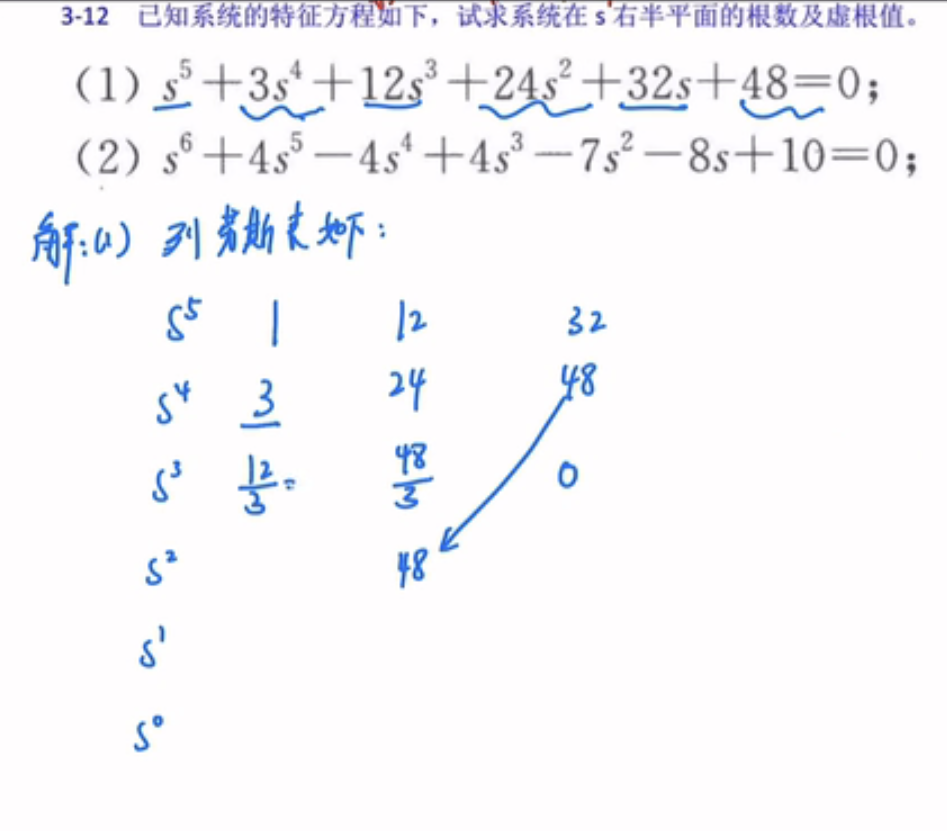 3-12 已知系统的特征方程如下，试求系统在 s 右半平面的根数及虚根值。
(1) s⁵+3s⁴+12s³+24s²+32s+48=0;
(2) s⁶+4s⁵−4s⁴+4s³−7s²−8s+10=0;
解:(1) 列劳斯表如下:
s⁵ 1 12 32
s⁴ 3 24 48
s³ 12/3= 48/3 0
s² 48
s¹
s⁰